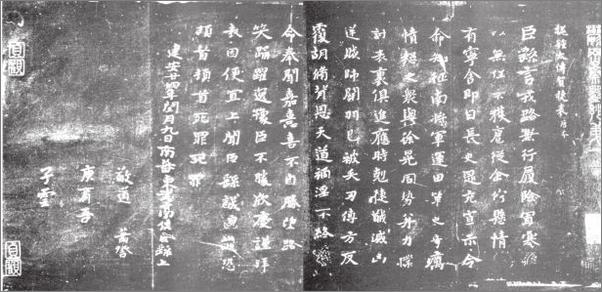 臣繇言戎路兼行履險冒寒臣
以無任不獲扈從企佇懸情無
有寧舍即日長史逮充宣示令
命知征南將軍運田單之奇厲
憤怒之衆與徐晃同勢并力撲
討表裏俱進應時剋捷馘滅凶
逆賊帥關羽已被矢刃傅方反
覆胡脩背恩天道禍淫不終厥
命奉聞嘉憙喜不自勝望路載
笑踊躍逸豫臣不勝欣慶謹拜
表因便宜上聞臣繇誠惶誠恐
頓首頓首死罪死罪
建安廿四年閏月九日南蕃東武亭侯臣繇上
貞觀
貞觀